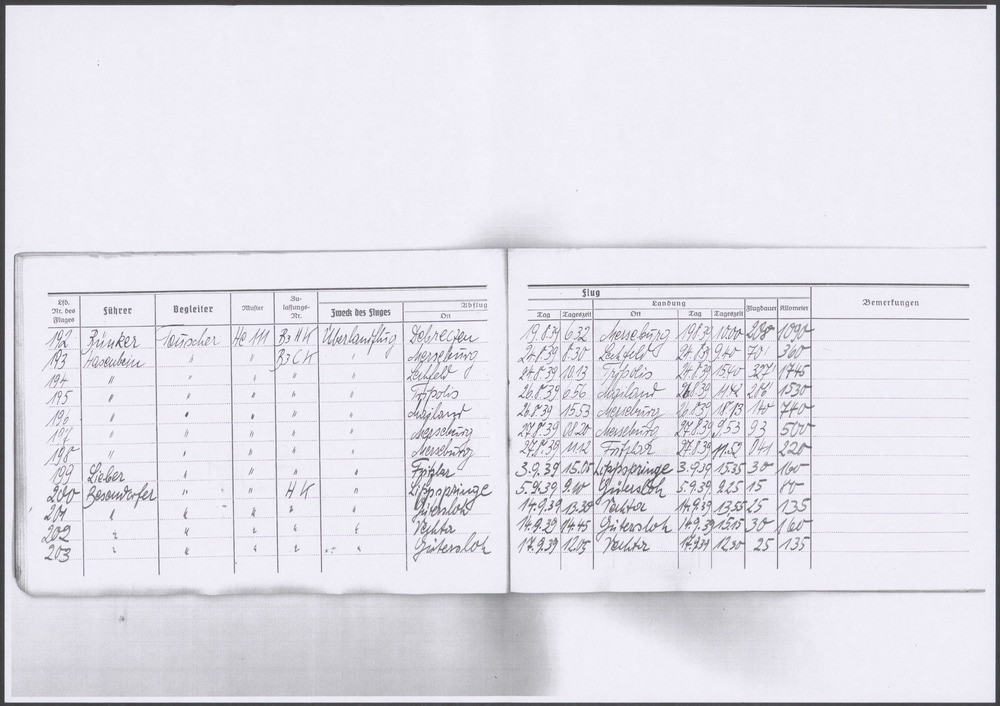 Lfd. Nr. des Fluges | Führer | Begleiter | Muster | Zulassungs-Nr. | Zweck des Fluges | Abflug Ort
Flug
Landung
Tag | Tageszeit | Ort | Tag | Tageszeit | Flugdauer | Kilometer | Bemerkungen
192 Rünker Tauscher He 111 B3HK Überlandflug Debreczen 19.8.39 6.32 Merseburg 19.8.39 10.00 208 1090
193 Hasenbein " " B3CK " Merseburg 24.8.39 8.30 Lechfeld 24.8.39 9.40 70' 360
194 " " " " " Lechfeld 24.8.39 10.13 Tripolis 24.8.39 15.40 327' 1745
195 " " " " " Tripolis 26.8.39 6.56 Mailand 26.8.39 1530
196 " " " " " Mailand 26.8.39 15.53 Merseburg 26.8.39 18.13 140 740
197 " " " " " Merseburg 27.8.39 08.20 Merseburg 27.8.39 9.53 93 500
198 " " " " " Merseburg 27.8.39 11.12 Fritzlar 27.8.39 11.52 220
199 Lieber " " " " Fritzlar 3.9.39 15.05 Lippspringe 3.9.39 15.35 30 160
200 Besendorfer " " HK " Lippspringe 5.9.39 9.10 Gütersloh 5.9.39 9.25 15 80
201 " " " " " Gütersloh 14.9.39 13.30 Vechta 14.9.39 13.55 25 135
202 " " " " " Vechta 14.9.39 14.45 Gütersloh 14.9.39 15.15 30 160
203 " " " " " Gütersloh 17.9.39 12.05 Vechta 17.9.39 12.30 25 135